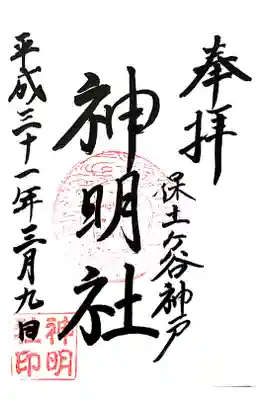 奉拝
保土ケ谷神戸
神明社
平成三十一年三月九日
神明
社印